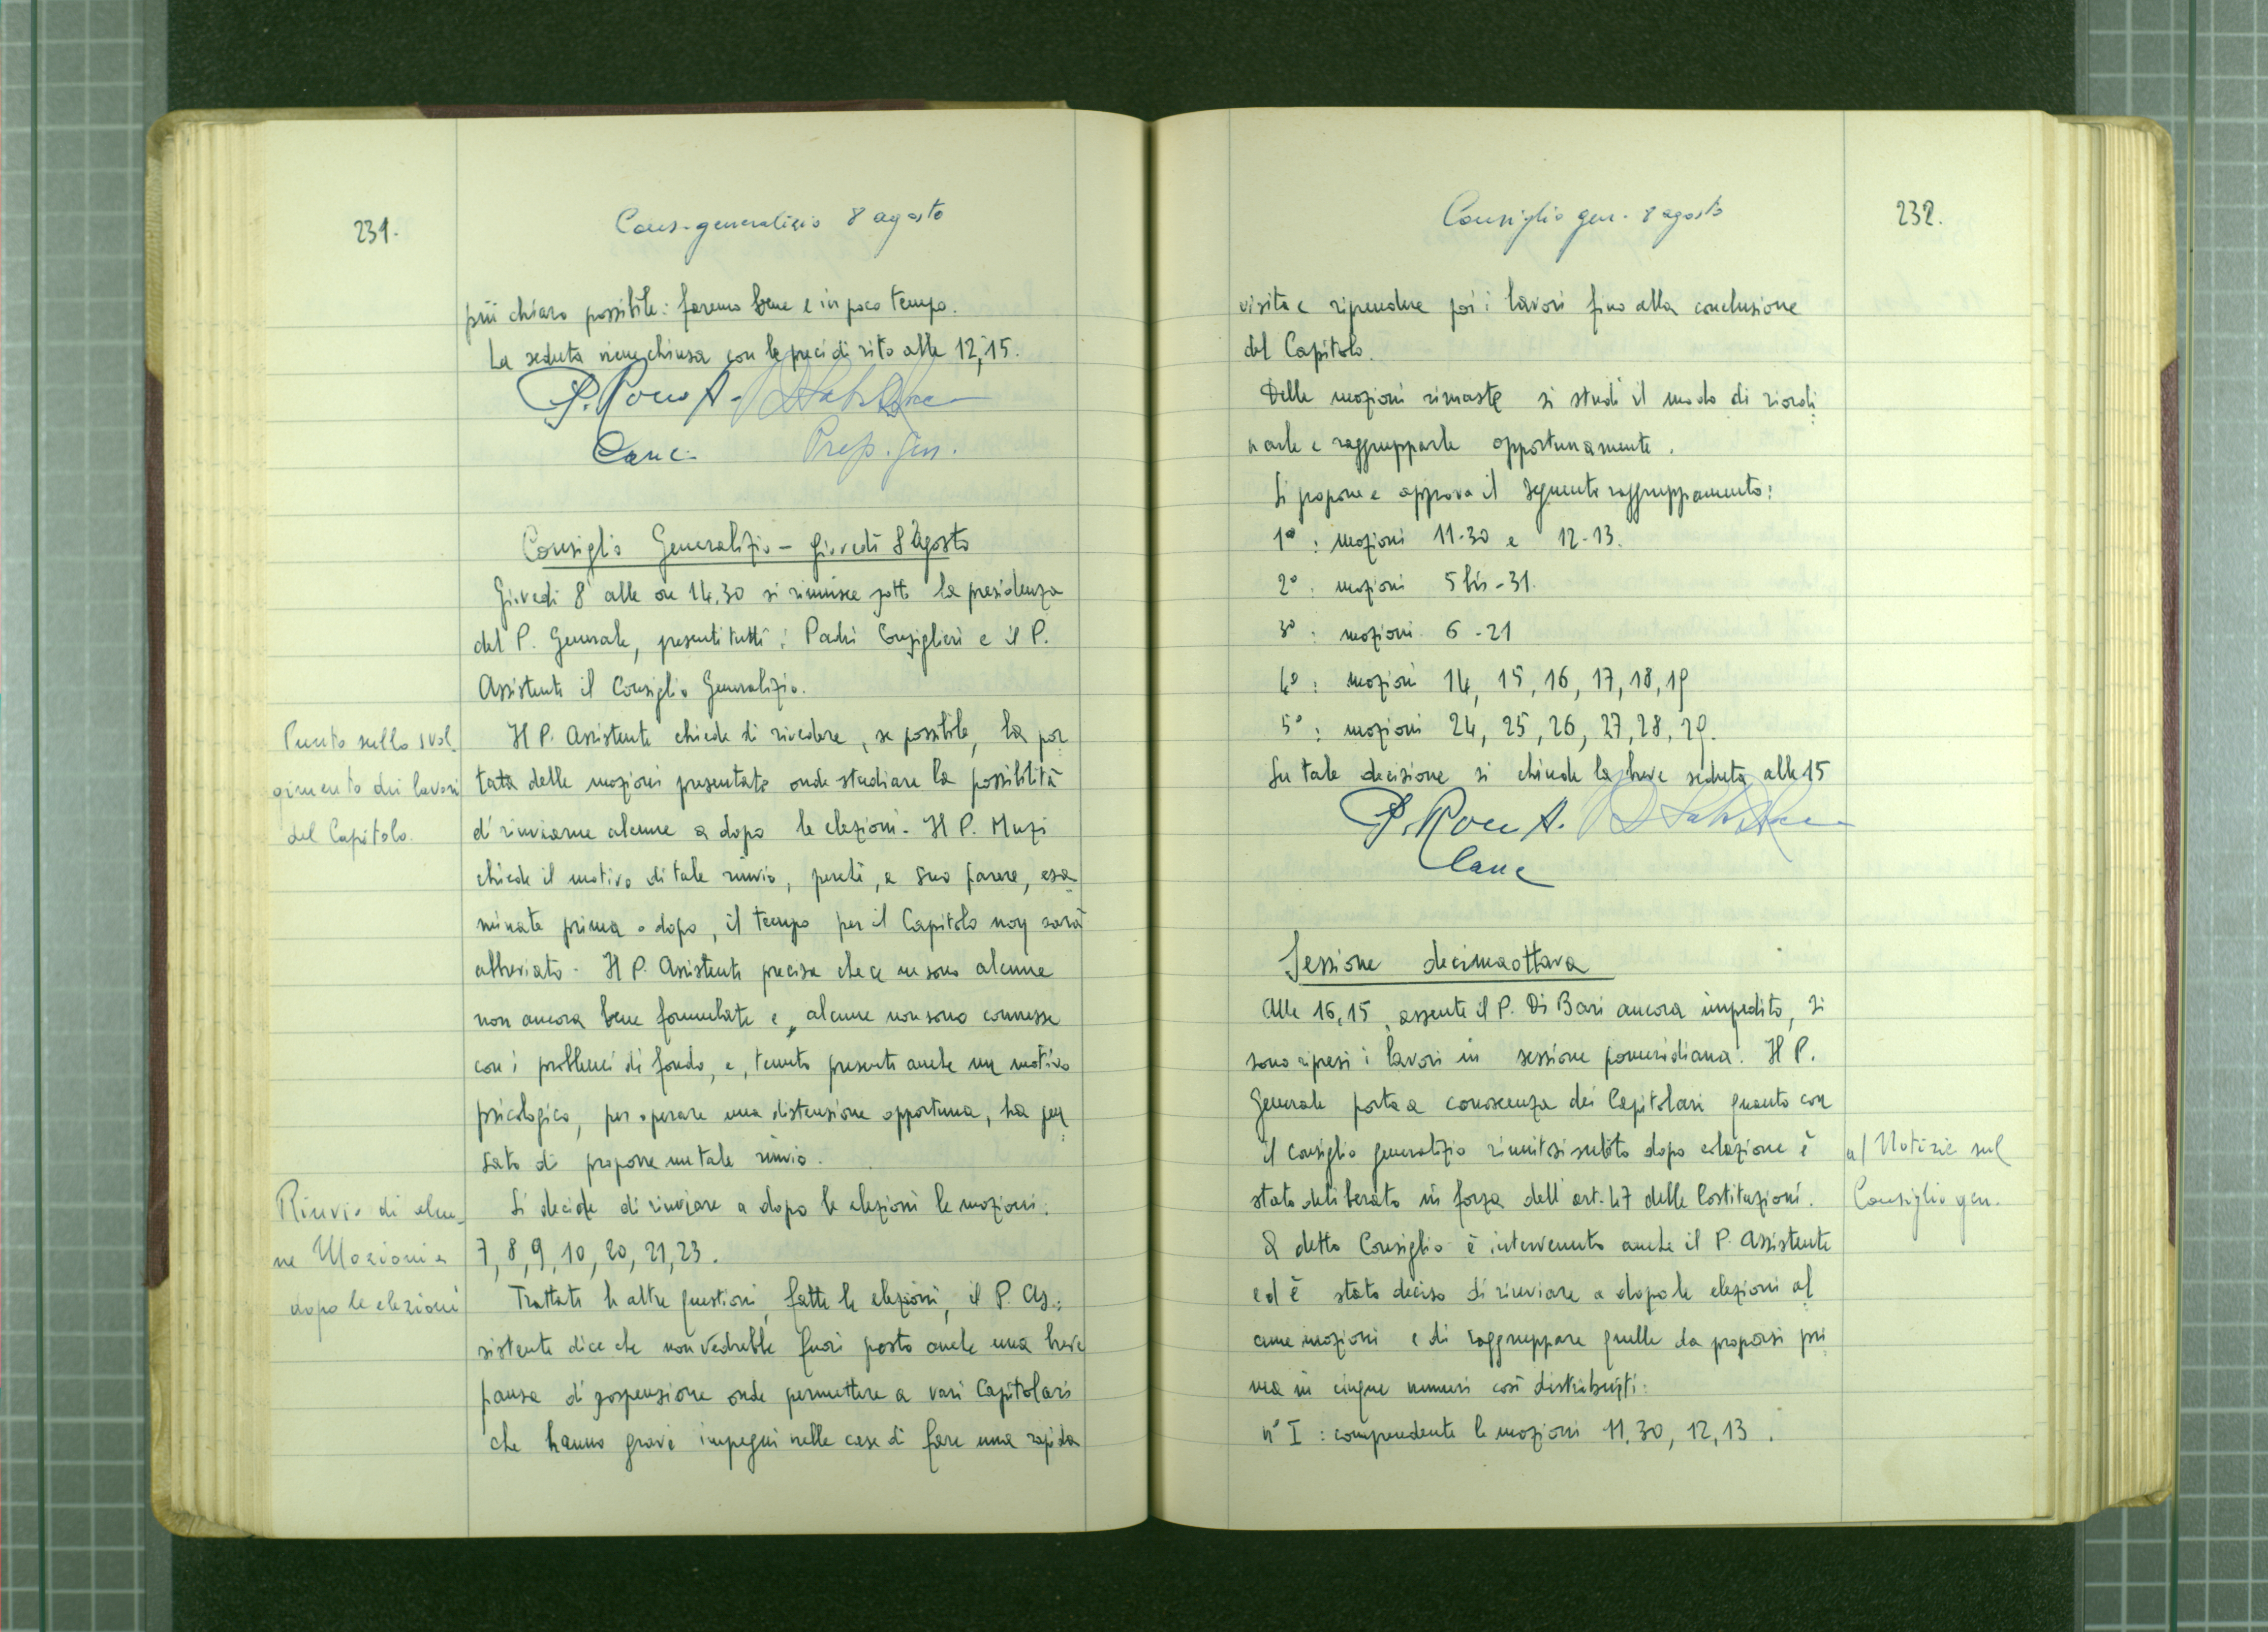 231.
Cons. generalizio 8 agosto
più chiaro possibile: faremo bene e in poco tempo.
La seduta viene chiusa con le preci di rito alle 12,15.
P. Rocco A.
Canc. Prep. Gen.
Consiglio Generalizio – Giovedì 8 Agosto
Giovedì 8 alle ore 14,30 si riunisce sotto la presidenza
del P. Generale, presenti tutti i Padri Consiglieri e il P.
Assistente il Consiglio Generalizio.
Punto sullo svol_
gimento dei lavori
del Capitolo.
Il P. Assistente chiede di rivedere, se possibile, la por_
tata delle mozioni presentate onde studiare la possibilità
di rinviarne alcune a dopo le elezioni. Il P. Muzi
chiede il motivo di tale rinvio, perché, a suo parere, esa_
minate prima o dopo, il tempo per il Capitolo non sarà
abbreviato. Il P. Assistente precisa che ce ne sono alcune
non ancora bene formulate e, alcune non sono connesse
con i problemi di fondo, e, tenuto presente anche un motivo
psicologico, per operare una distensione opportuna, ha pen_
sato di proporre un tale rinvio.
Rinvio di alcu_
ne Mozioni a
dopo le elezioni
Si decide di rinviare a dopo le elezioni le mozioni:
7, 8, 9, 10, 20, 21, 23.
Trattate le altre questioni, fatte le elezioni, il P. As_
sistente dice che non vedrebbe fuori posto anche una breve
pausa di sospensione onde permettere a vari Capitolari
che hanno gravi impegni nelle case di fare una rapida
Consiglio gen. 8 agosto
232.
visita e riprendere poi i lavori fino alla conclusione
del Capitolo.
Delle mozioni rimaste si studi il modo di riordi_
narle e raggrupparle opportunamente.
Si propone e approva il seguente raggruppamento:
1º: mozioni 11-30 e 12-13.
2º: mozioni 5 bis - 31.
3º: mozioni 6 - 21
4º: mozioni 14, 15, 16, 17, 18, 19
5º: mozioni 24, 25, 26, 27, 28, 29.
Su tale decisione si chiude la breve seduta alle 15
P. Rocco A.
Canc
Sessione decimaottava
Alle 16,15, assente il P. Di Bari ancora impedito, si
sono ripresi i lavori in sessione pomeridiana. Il P.
Generale porta a conoscenza dei Capitolari quanto con
il consiglio generalizio riunitosi subito dopo colazione è
stato deliberato in forza dell'art. 47 delle Costituzioni.
a) Notizie sul
Consiglio gen.
A detto Consiglio è intervenuto anche il P. Assistente
ed è stato deciso di rinviare a dopo le elezioni al_
cune mozioni e di raggruppare quelle da proporsi pri_
ma in cinque numeri così distribuiti:
nº I: comprendente le mozioni 11, 30, 12, 13.